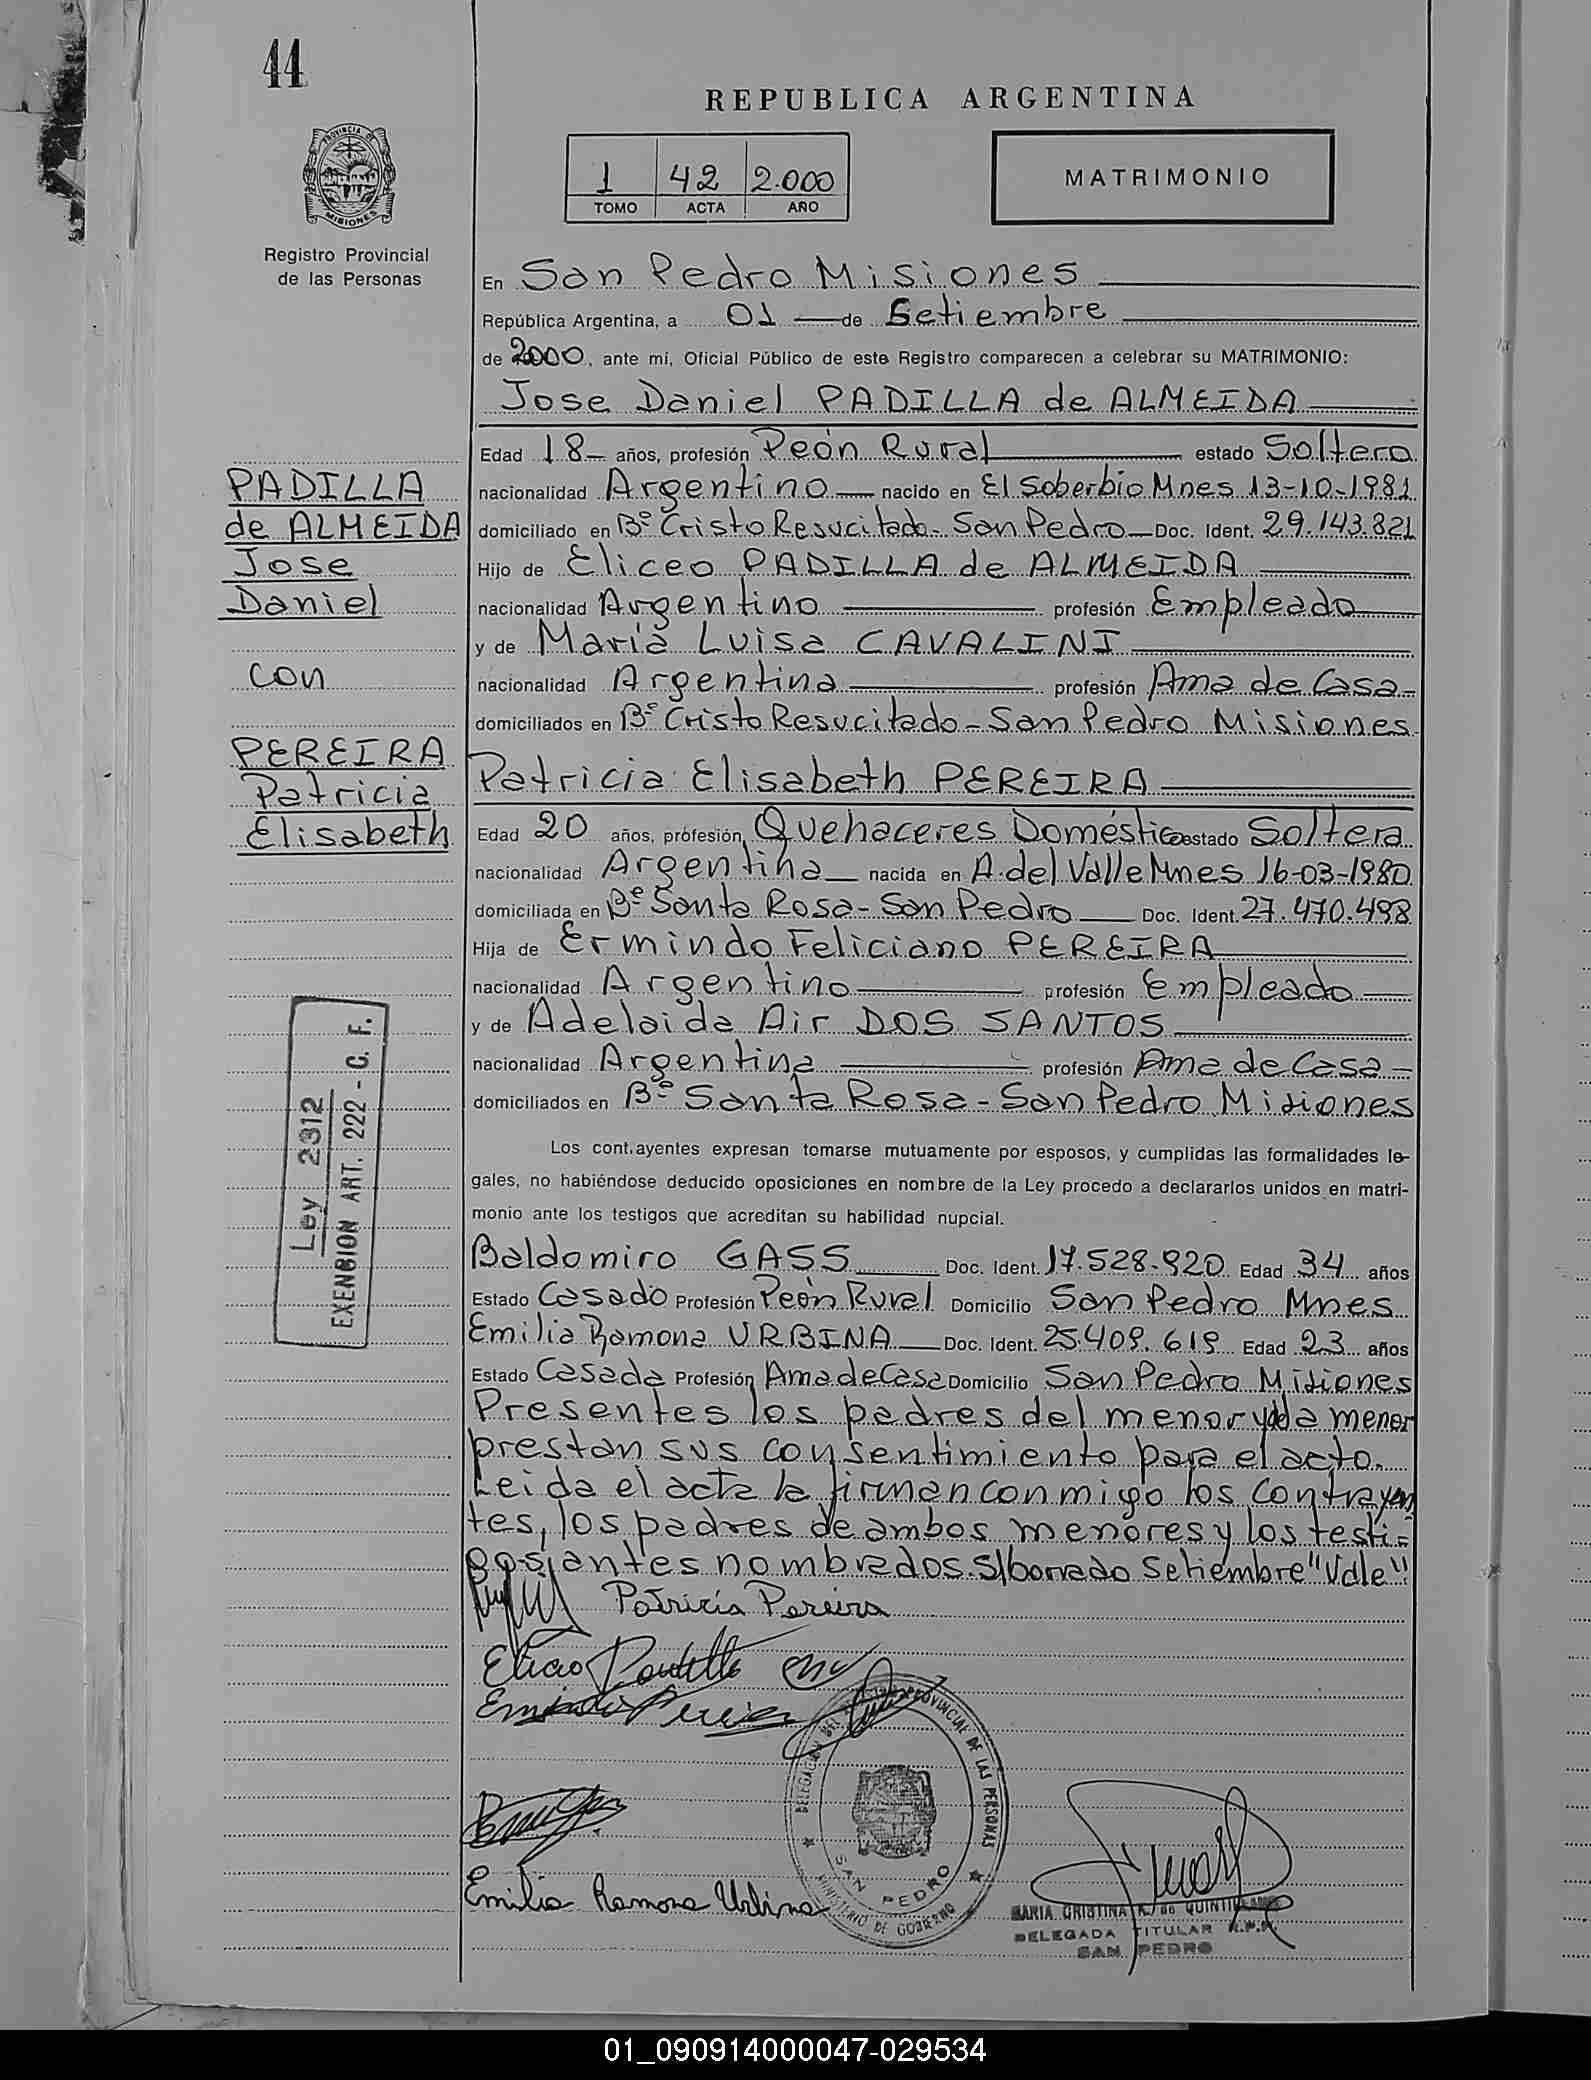 44
REPUBLICA ARGENTINA
1 42 2.000
TOMO ACTA AÑO
MATRIMONIO
PROVINCIA DE MISIONES
Registro Provincial
de las Personas
En San Pedro Misiones
República Argentina, a 01 de Setiembre
de 2000, ante mi, Oficial Público de este Registro comparecen a celebrar su MATRIMONIO:
Jose Daniel PADILLA de ALMEIDA
Edad 18 años, profesión Peón Rural estado Soltero
nacionalidad Argentino nacido en El Soberbio Mnes 13-10-1981
domiciliado en Bº Cristo Resucitado - San Pedro Doc. Ident. 29.143.821
Hijo de Eliceo PADILLA de ALMEIDA
nacionalidad Argentino profesión Empleado
y de María Luisa CAVALINI
nacionalidad Argentina profesión Ama de Casa
domiciliados en Bº Cristo Resucitado - San Pedro Misiones
PADILLA
de ALMEIDA
Jose
Daniel
con
PEREIRA
Patricia
Elisabeth
Patricia Elisabeth PEREIRA
Edad 20 años, profesión Quehaceres Doméstico estado Soltera
nacionalidad Argentina nacida en A. del Valle Mnes 16-03-1980
domiciliada en Bº Santa Rosa - San Pedro Doc. Ident. 27.470.498
Hija de Ermindo Feliciano PEREIRA
nacionalidad Argentino profesión Empleado
y de Adelaida Air DOS SANTOS
nacionalidad Argentina profesión Ama de Casa
domiciliados en Bº Santa Rosa - San Pedro Misiones
Ley 2312
EXENCION ART. 222 - C. F.
Los contrayentes expresan tomarse mutuamente por esposos, y cumplidas las formalidades le-
gales, no habiéndose deducido oposiciones en nombre de la Ley procedo a declararlos unidos en matri-
monio ante los testigos que acreditan su habilidad nupcial.
Baldomiro GASS Doc. Ident. 17.528.920 Edad 34 años
Estado Casado Profesión Peón Rural Domicilio San Pedro Mnes
Emilia Ramona URBINA Doc. Ident. 25.409.619 Edad 23 años
Estado Casada Profesión Ama de Casa Domicilio San Pedro Misiones
Presentes los padres del menor y de la menor
prestan sus consentimiento para el acto.
Leida el acta la firman conmigo los contrayen
tes, los padres de ambos menores y los testi-
gos antes nombrados. S/borrado Setiembre "Vale"
Patricia Pereira
Eliceo Padilla
Ermindo Pereira
DELEGACION DEL REGISTRO PROVINCIAL DE LAS PERSONAS
SAN PEDRO
MINISTERIO DE GOBIERNO
Emilia Ramona Urbina
MARIA CRISTINA
DELEGADA TITULAR R.P.P.
SAN PEDRO
01_090914000047-029534